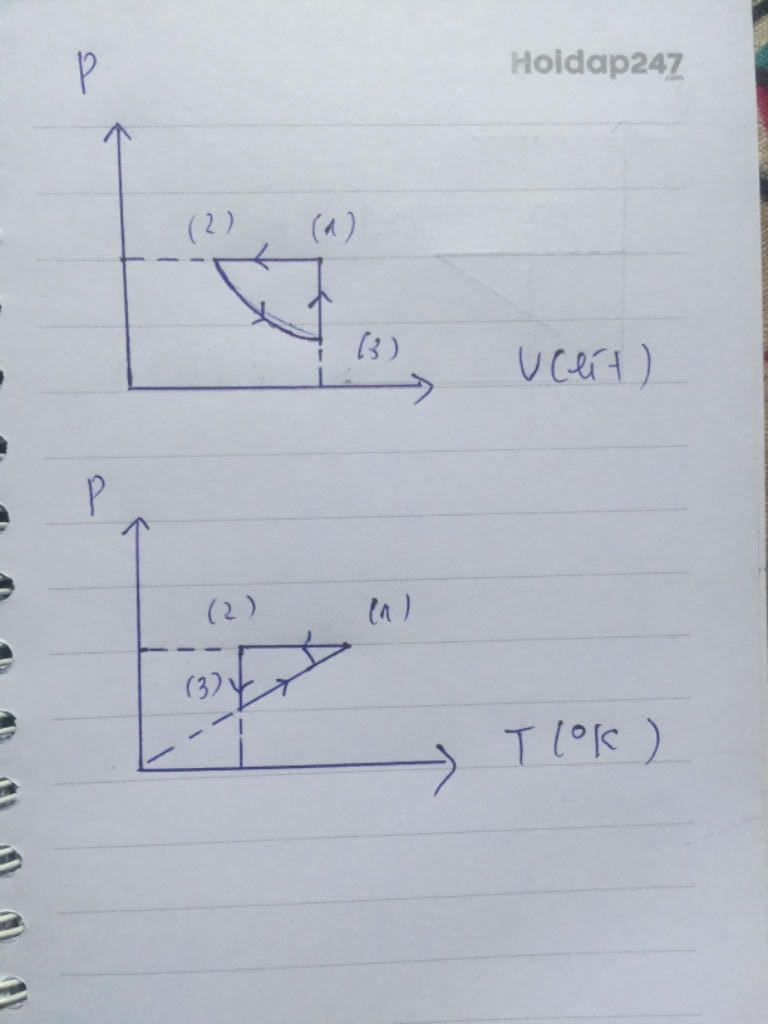 Hoidap247
.com
P
(2) (1)
(3)
V(lít)
P
(2) (1)
(3)
T(°K)